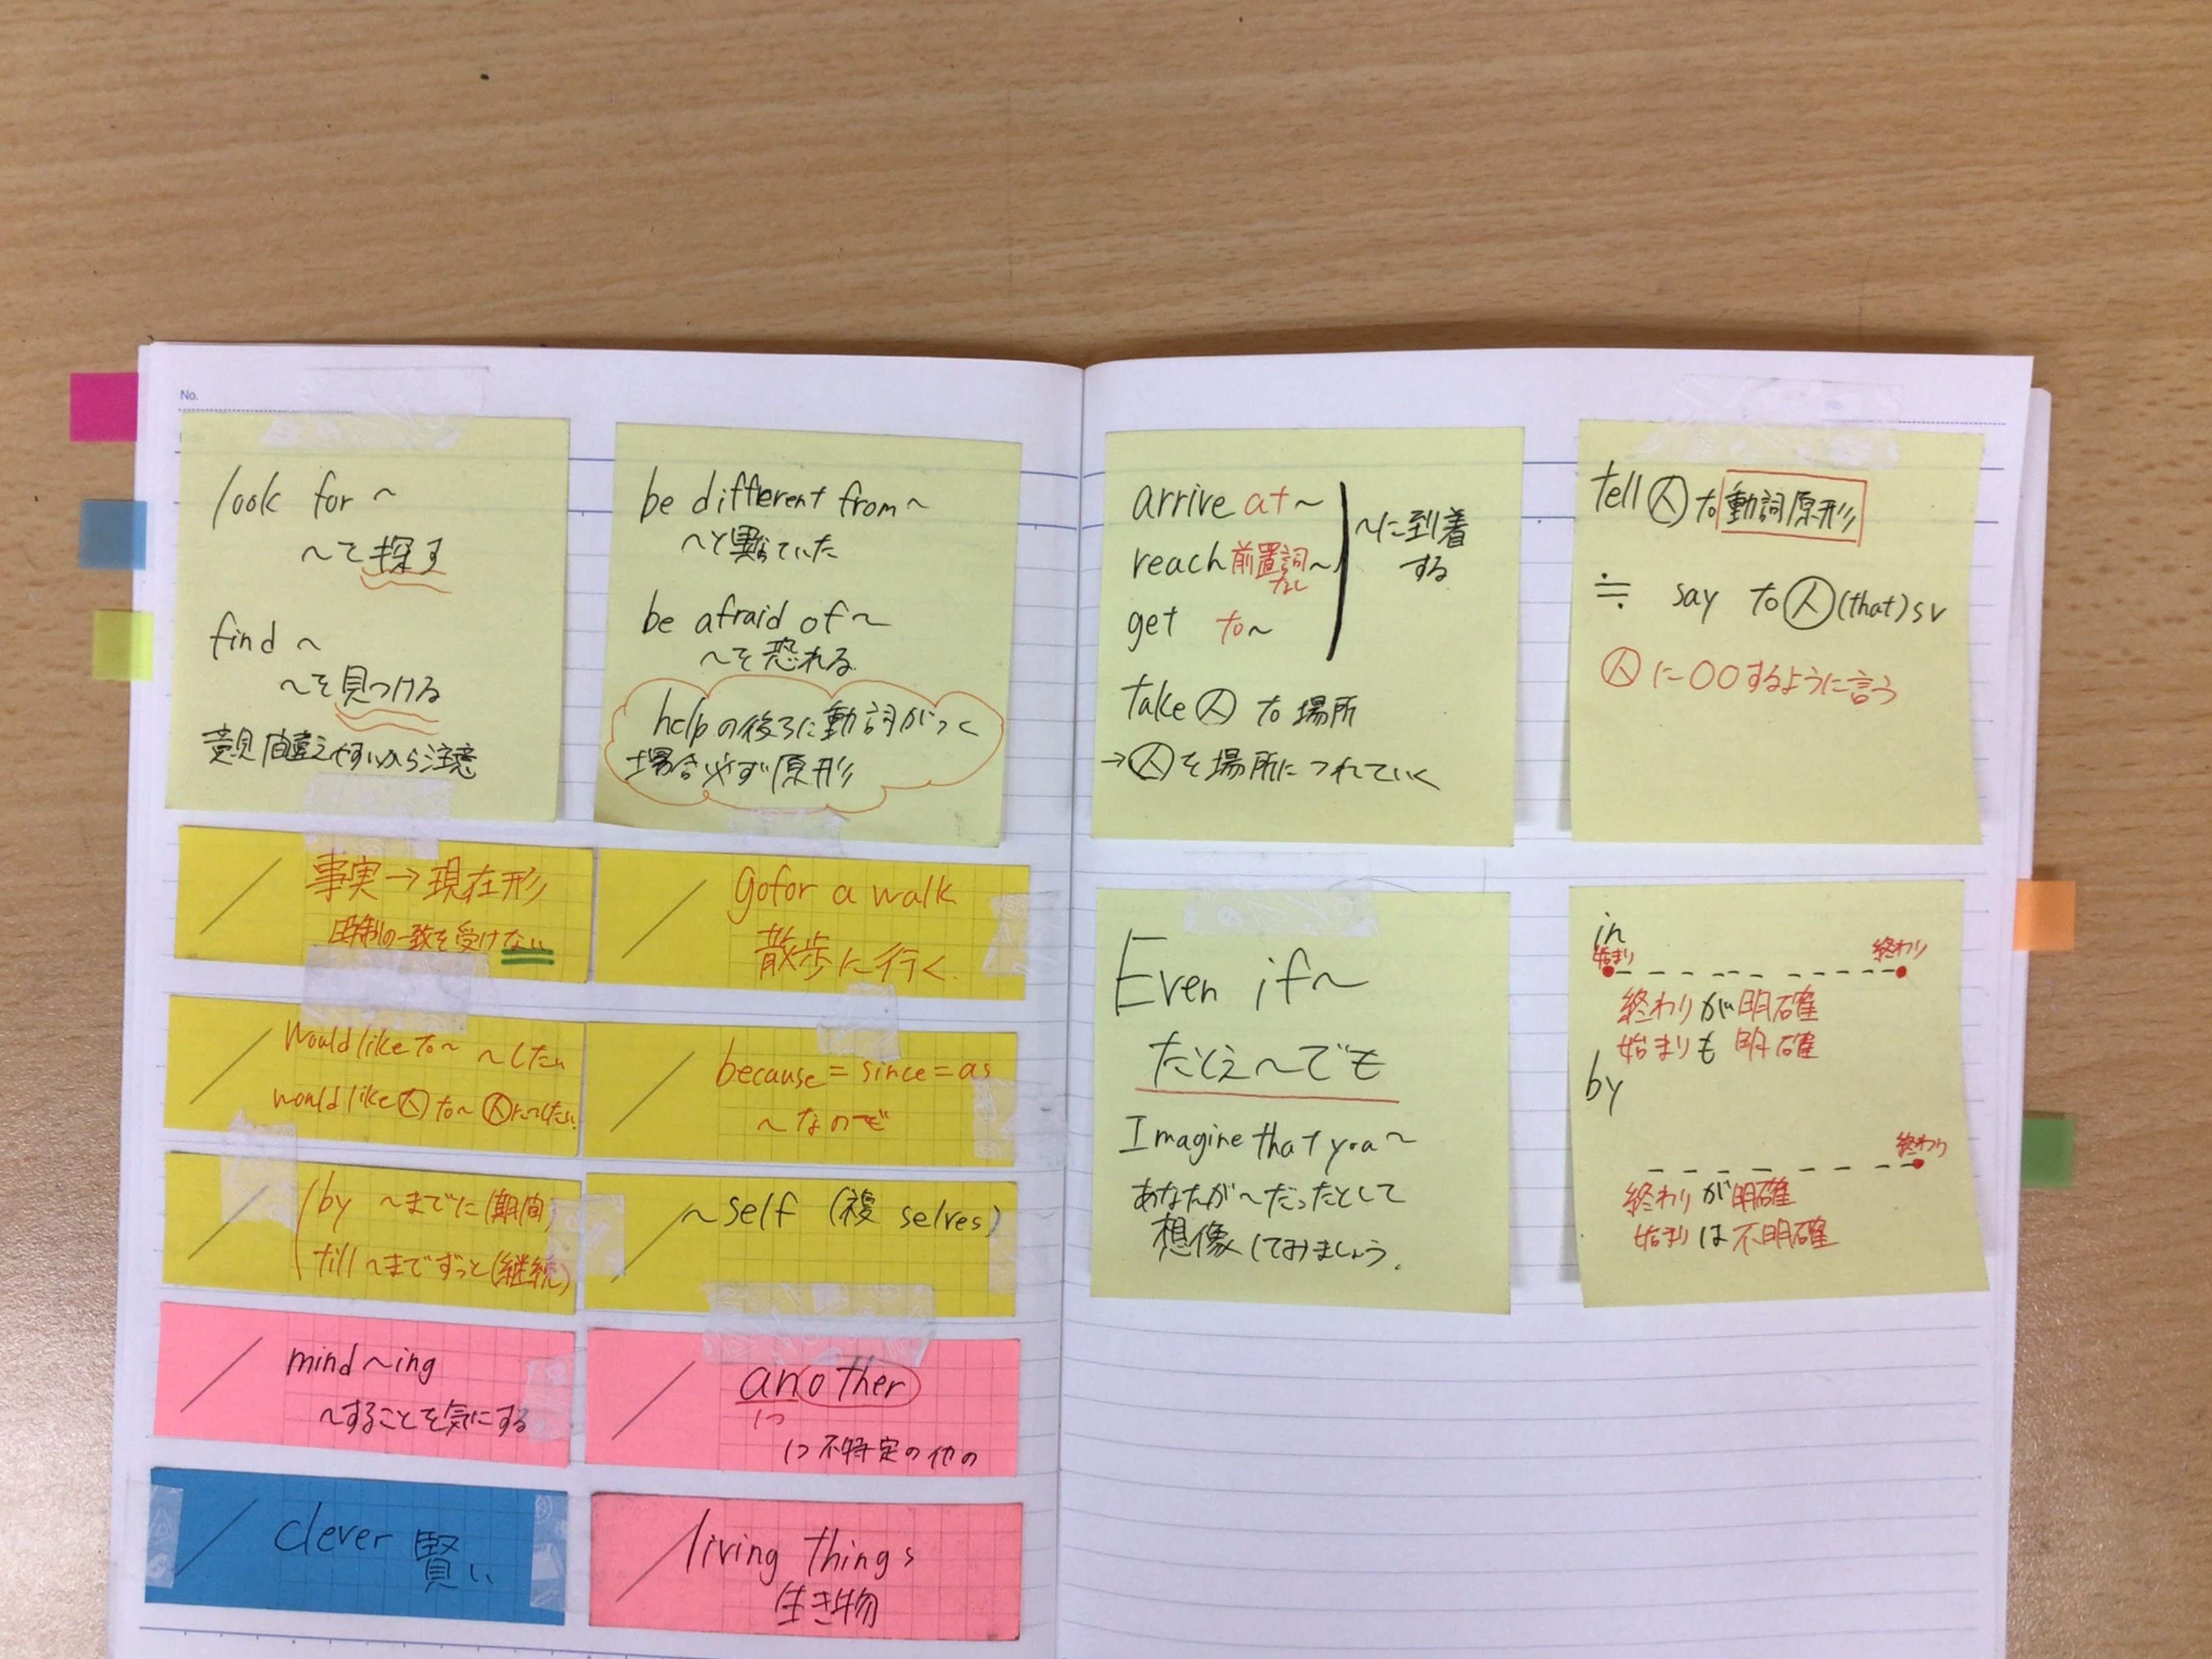 No.
look for ~
~を探す
find ~
~を見つける
意見間違えやすいから注意
be different from~
~と異っていた
be afraid of~
~を恐れる
helpの後ろに動詞がつく
場合必ず原形
事実→現在形
時制の一致を受けない
gofor a walk
散歩に行く.
Would like to~ ~したい
would like人to~ 人に~したい
because = since = as
~なので
by ~までに(期間)
till ~までずっと(継続)
~self (複 selves)
mind ~ing
~することを気にする
another
1つ
1つ不特定の他の
clever 賢い
living things
生き物
arrive at~
reach前置詞~
なし
get to~
~に到着
する
take人 to 場所
→人を場所につれていく
tell人to動詞原形
≒ say to人(that)sv
人に〇〇するように言う
Even if~
たとえ~でも
Imagine that you~
あなたが~だったとして
想像してみましょう.
in
始まり 終わり
終わりが明確
始まりも明確
by
終わり
終わりが明確
始まりは不明確